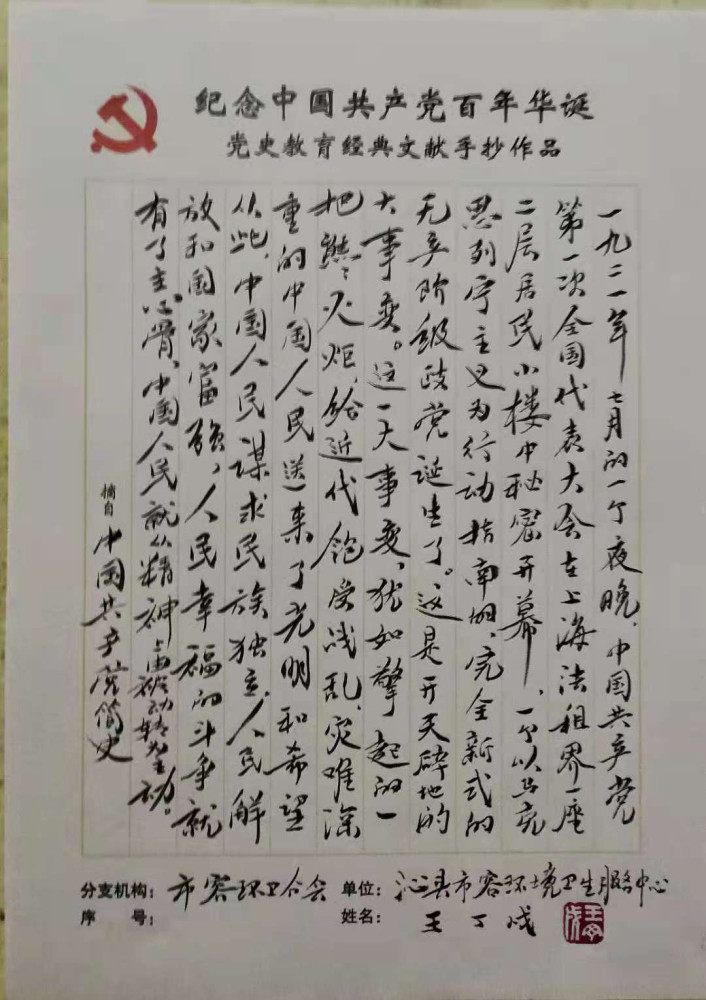 纪念中国共产党百年华诞
党史教育经典文献手抄作品
一九二一年七月的一个夜晚,中国共产党
第一次全国代表大会在上海法租界一座
二层居民小楼中秘密开幕,一个以马克
思列宁主义为行动指南的、完全新式的
无产阶级政党诞生了。这是开天辟地的
大事变。这一大事变,犹如擎起的一
把熊熊火炬,给近代饱受战乱、灾难深
重的中国人民送来了光明和希望
从此,中国人民谋求民族独立、人民解
放和国家富强、人民幸福的斗争就
有了主心骨,中国人民就从精神上由被动转为主动。
摘自 中国共产党简史
分支机构: 市容环卫公会 单位: 沁县市容环境卫生服务中心
序 号: 姓名: 王丁成